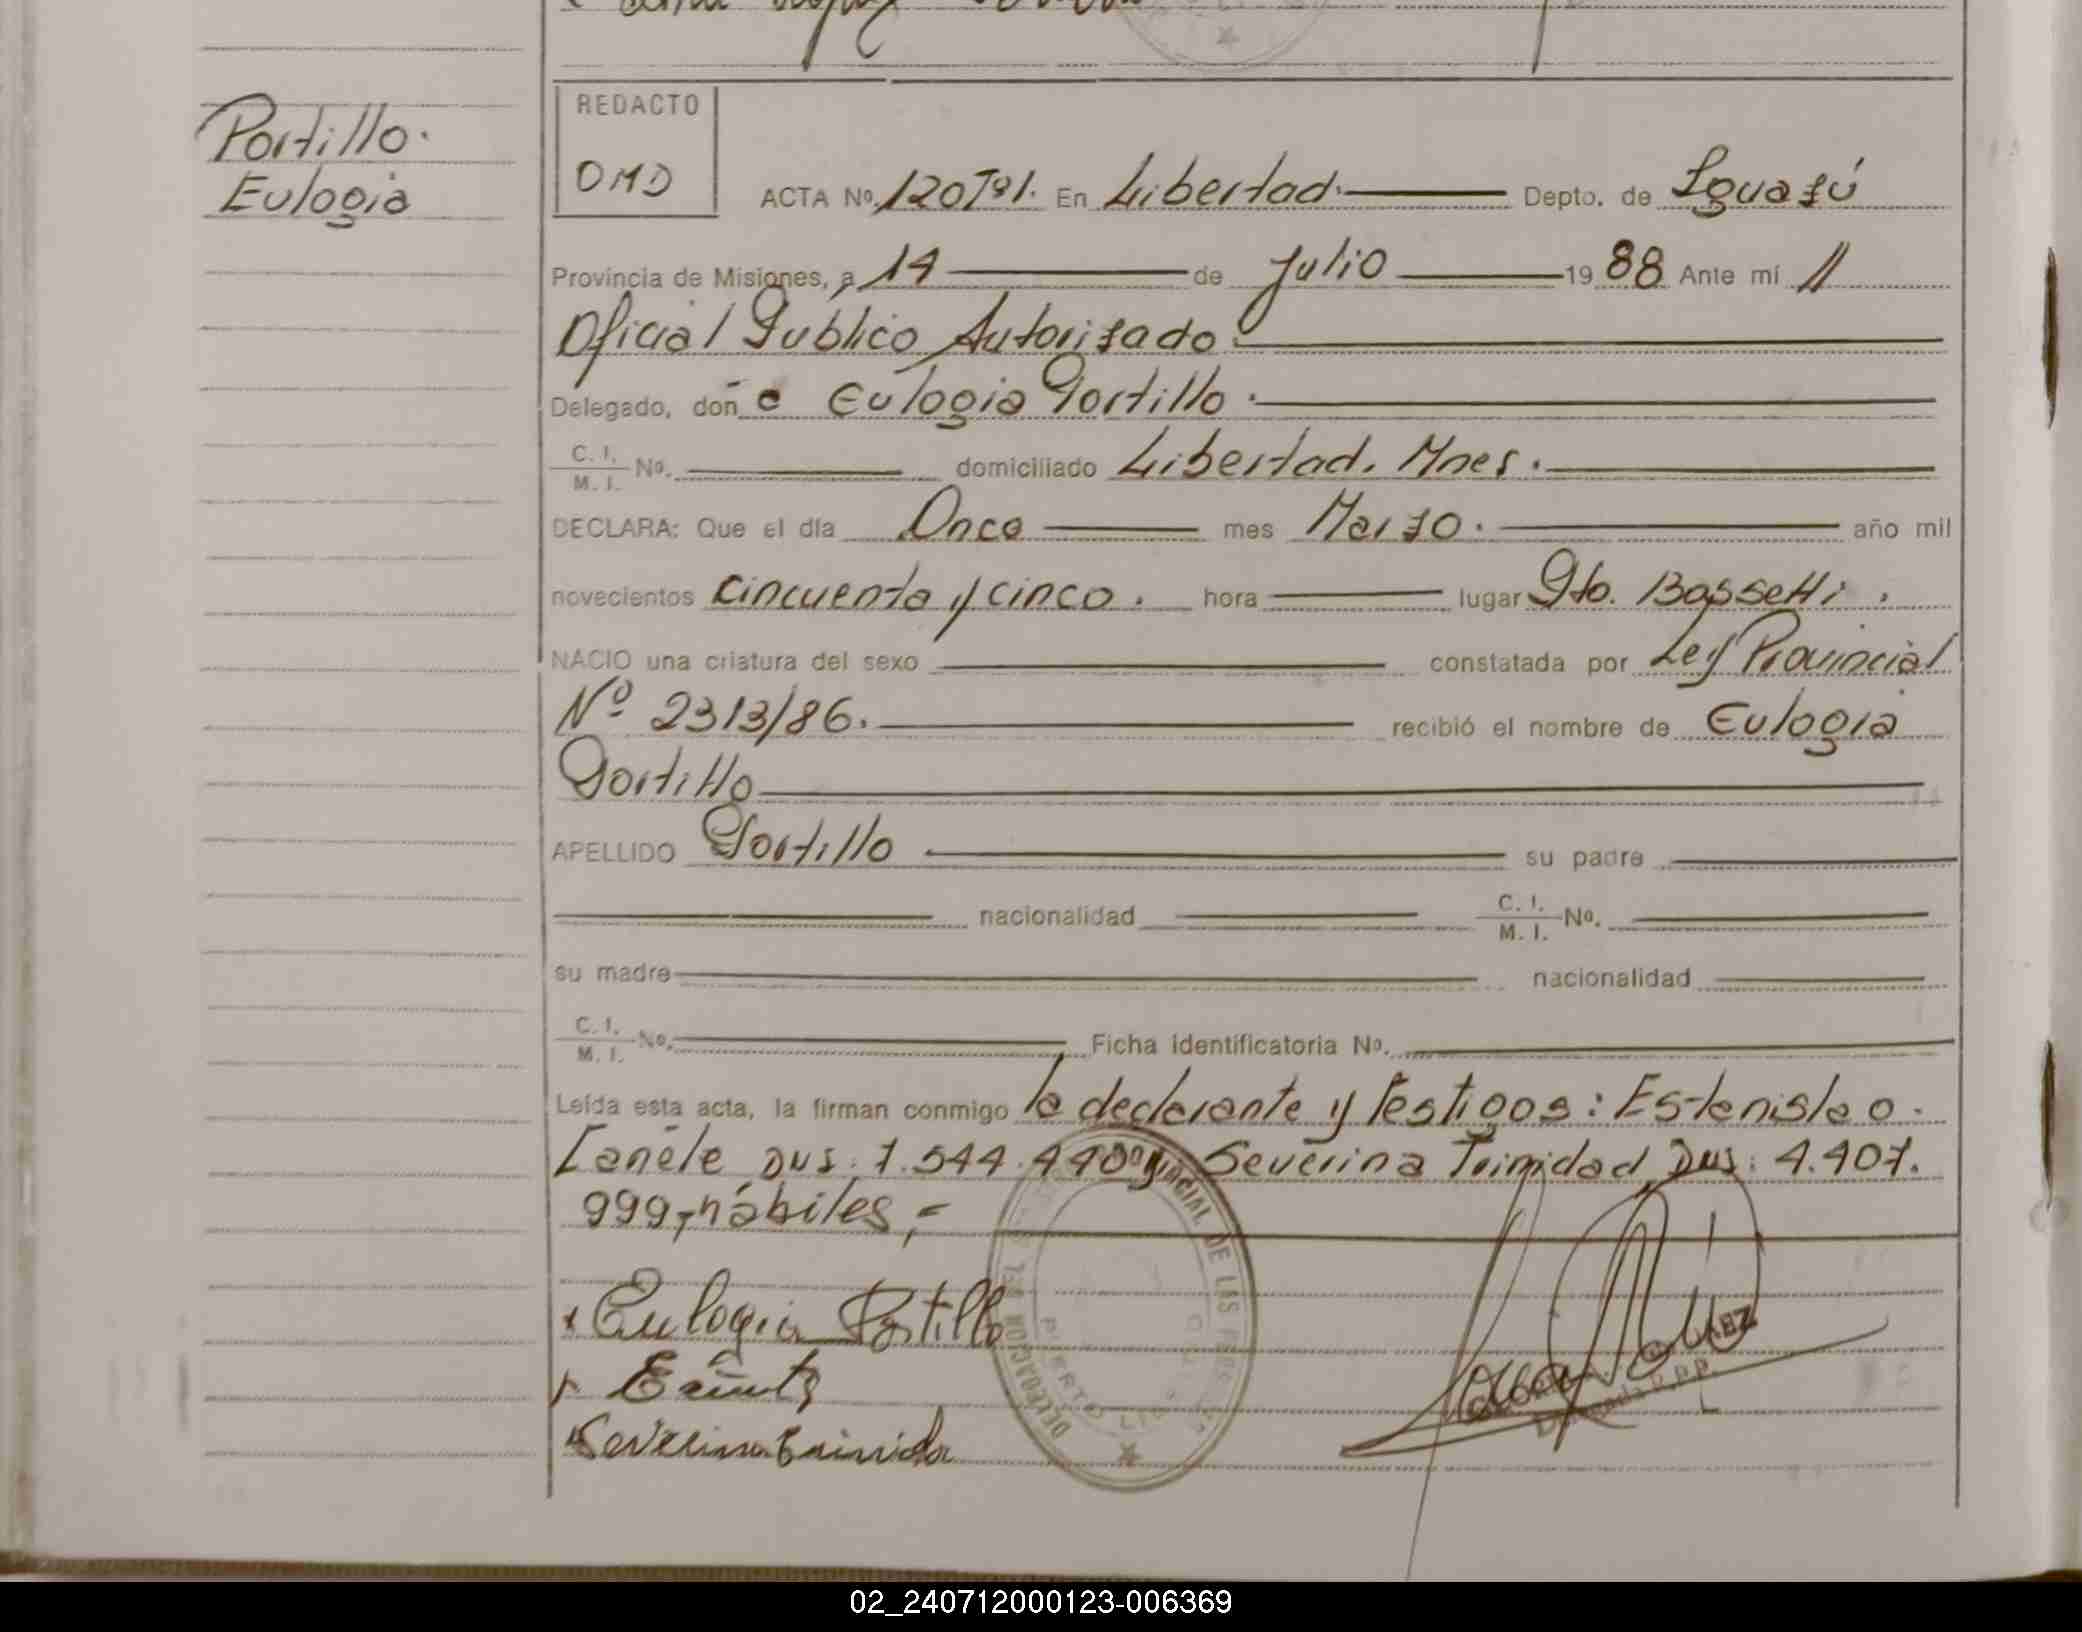 Portillo.
Eulogia
REDACTO
OMD
ACTA Nº. 120Tº1. En Libertad. Depto. de Iguazú
Provincia de Misiones, a 14 de Julio 1988 Ante mí
Oficial Publico Autorizado
Delegado, doña Eulogia Portillo.
C. I. / M. I. Nº. domiciliado Libertad. Mnes.
DECLARA: Que el día Once mes Marzo. año mil
novecientos cincuenta y cinco. hora lugar Pto. Bossetti.
NACIO una criatura del sexo constatada por Ley Provincial
Nº 2313/86. recibió el nombre de Eulogia
Portillo
APELLIDO Portillo su padre
nacionalidad C. I. / M. I. Nº.
su madre nacionalidad
C. I. / M. I. Nº. Ficha identificatoria Nº.
Leída esta acta, la firman conmigo la declarante y Testigos: Estanislao.
Cañete DNI. 7.544.440 y Severina Trinidad, DNI: 4.407.
999,-hábiles,-
Eulogia Portillo
Severina Trinida
DELEGACION
PROVINCIAL DE LAS PERSONAS
PUERTO LIBERTAD
Delegada R.P.P.
02_240712000123-006369